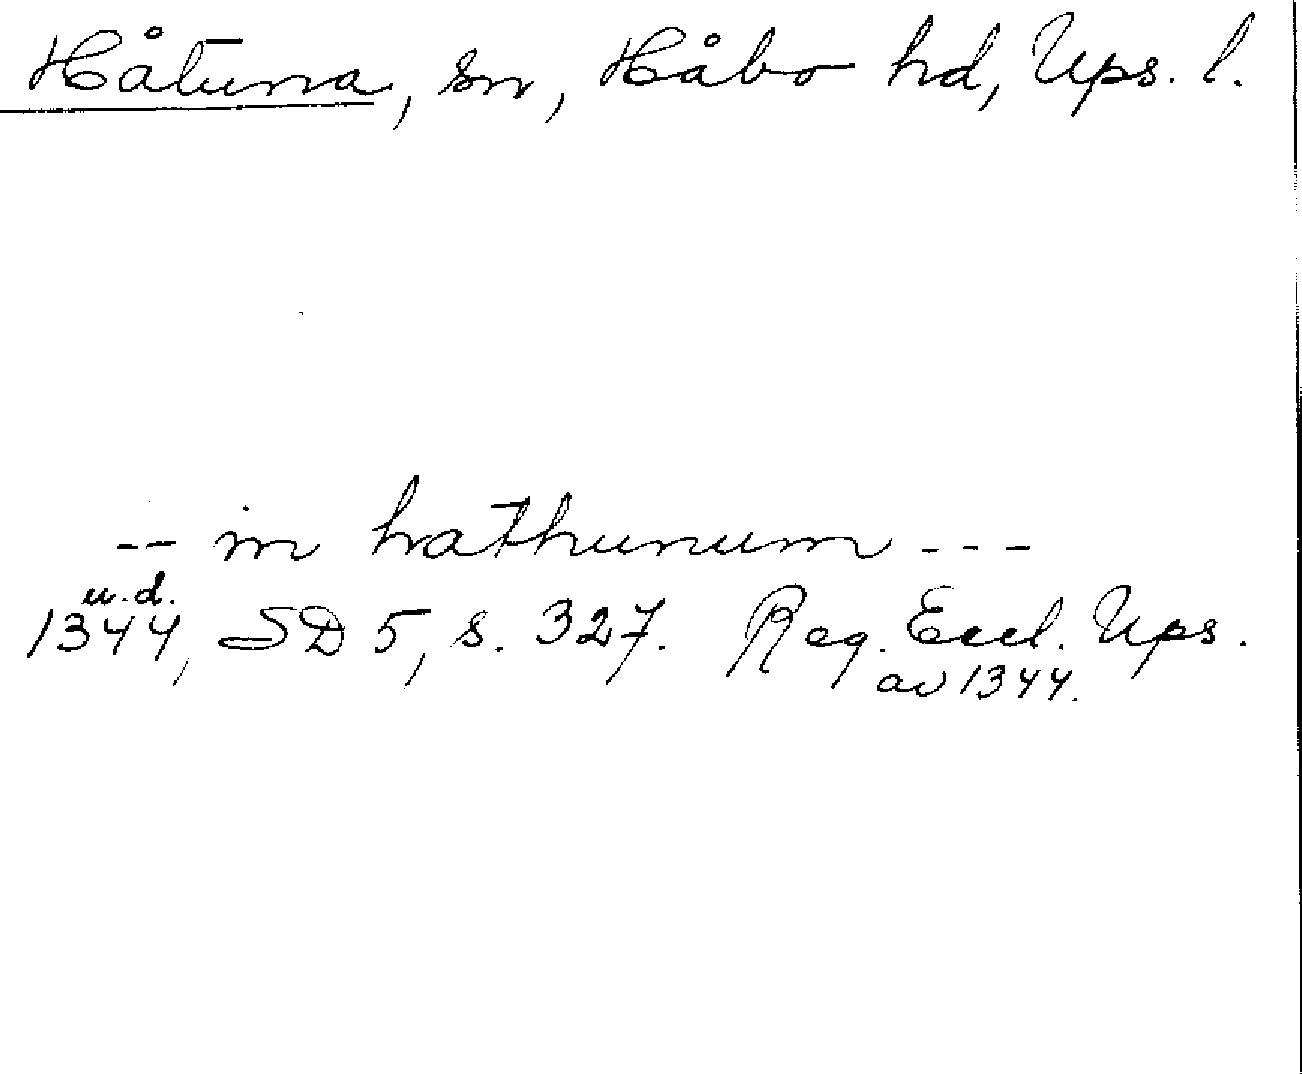 Håtuna, sn, Håbo hd, Ups. l.
-- in hathunum ---
u.d.
1344, SD 5, s. 327. Reg. Eccl. Ups.
av 1344.